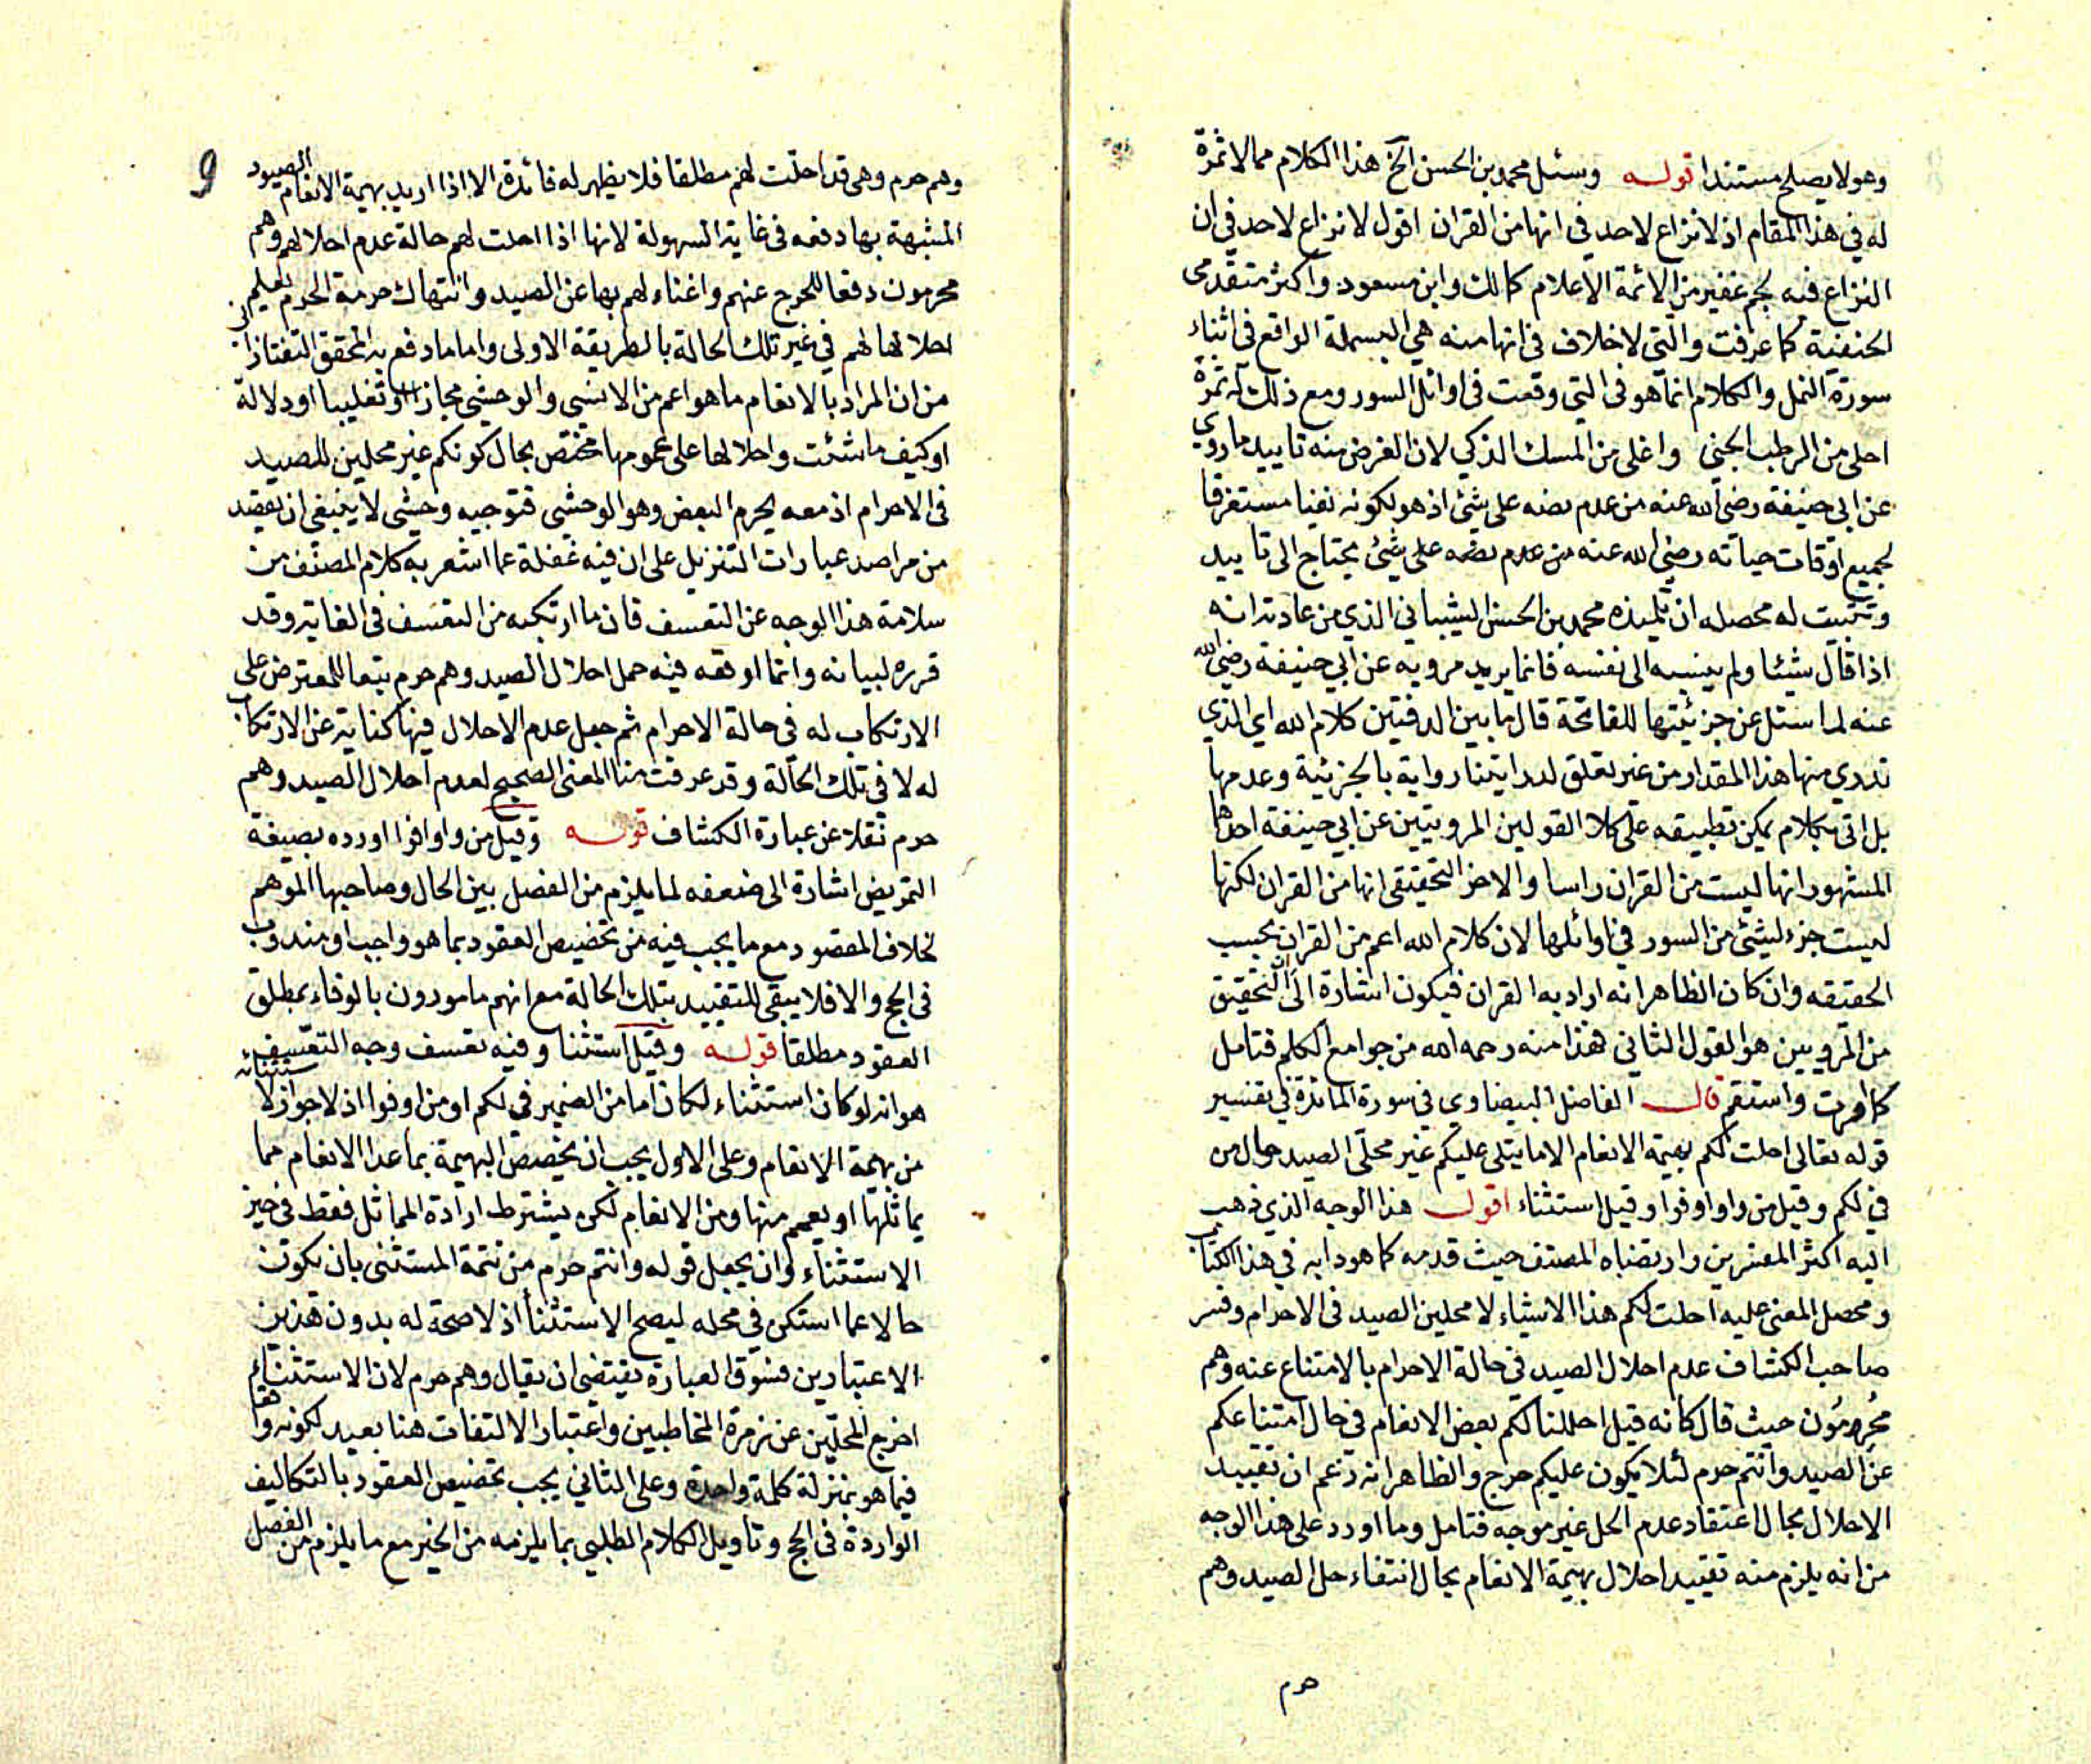 وهو لا يصلح مستندا قوله وسئل محمد بن الحسن الخ هذا الكلام مما لا ثمرة
له في هذا المقام اذ لا نزاع لاحد في انها من القران اقول لا نزاع لاحد في ان
النزاع فيه لجم غفير من الائمة الاعلام كمالك وابن مسعود واكثر متقدمى
الحنفية كما عرفت والتى لا خلاف فى انها منه هي البسملة الواقع فى اثناء
سورة النمل والكلام انما هو فى التى وقعت فى اوائل السور ومع ذلك له ثمرة
احلى من الرطب الجنى واغلى من المسك الذكي لان الغرض منه تاييد ما روي
عن ابى حنيفة رضى الله عنه من عدم نصه على شئ اذ هو لكونه نفيا مستغرقا
لجميع اوقات حياته رضى الله عنه من عدم نصه على شئ يحتاج الى تاييد
وتثبيت له محصله ان تلميذه محمد بن الحسن الشيباني الذي من عادته انه
اذا قال شيئا ولم ينسبه الى نفسه فانما يريد مرويه عن ابي حنيفة رضى الله
عنه لما سئل عن جزئيتها للفاتحة قال ما بين الدفتين كلام الله اي الذي
ندري منها هذا المقدار من غير تعلق لدرايتنا رواية بالجزئية وعدمها
بل اتى بكلام يمكن تطبيقه على كلا القولين المرويين عن ابي حنيفة احدهما
المشهور انها ليست من القران راسا والاخر التحقيقى انها من القران لكنها
ليست جزء لشئ من السور في اوائلها لان كلام الله اعم من القران بحسب
الحقيقه وان كان الظاهر انه اراد به القران فيكون اشارة الى ان التحقيق
من المرويين هو القول الثاني فهذا منه رحمه الله من جوامع الكلم فتامل
كما امرت واستقم قال الفاضل البيضاوي في سورة المائدة في تفسير
قوله تعالى احلت لكم بهيمة الانعام الا ما يتلى عليكم غير محلى الصيد حال من
في لكم وقيل من واو اوفوا وقيل استثناء اقول هذا الوجه الذي ذهب
اليه اكثر المفسرين وارتضاه المصنف حيث قدمه كما هو دابه في هذا الكتاب
ومحصل المعنى عليه احلت لكم هذا الاشياء لا محلين الصيد فى الاحرام وفسر
صاحب الكشاف عدم احلال الصيد في حالة الاحرام بالامتناع عنه وهم
محرمون حيث قال كانه قيل احللنا لكم بعض الانعام في حال امتناعكم
عن الصيد وانتم حرم لئلا يكون عليكم حرج والظاهر انه زعم ان تقييد
الاحلال بحال اعتقاد عدم الحل غير موجه فتامل وما اورد على هذا الوجه
من انه يلزم منه تقييد احلال بهيمة الانعام بحال انتفاء حل الصيد وهم
حرم
9
وهم حرم وهى قد احلت لهم مطلقا فلا يظهر له فائدة الا اذا اريد ببهيمة الانعام الصيود
المشبهة بها دفعه فى غاية السهولة لانها اذا احلت لهم حالة عدم احلالهم وهم
محرمون دفعا للحرج عنهم واغناء لهم بها عن الصيد وانتهاك حرمة الحرم لعلم
احلالها لهم في غير تلك الحالة بالطريقة الاولى واما ما دفع به المحقق التفتازاني
من ان المراد بالانعام ما هو اعم من الانسى والوحشى مجازا او تغليبا او دلالة
او كيف ما شئت واحلالها على عمومها مختص بحال كونكم غير محلين للصيد
فى الاحرام اذ معه يحرم البعض وهو الوحشى فتوجيه وحشى لا ينبغى ان يقصد
من مراصد عبارات التنزيل على ان فيه غفلة عما اشعر به كلام المصنف من
سلامة هذا الوجه عن التعسف فان ما ارتكبه من التعسف فى الغاية وقد
قرره لبيانه وانما اوقعه فيه حمل احلال الصيد وهم حرم تبعا للمعترض على
الارتكاب له فى حالة الاحرام ثم جعل عدم الاحلال فيها كناية عن الارتكاب
له لا فى تلك الحالة وقد عرفت منا المعنى الصحيح لعدم احلال الصيد وهم
حرم نقلا عن عبارة الكشاف قوله وقيل من واو اوفوا اورده بصيغة
التمريض اشارة الى ضعفه لما يلزم من الفصل بين الحال وصاحبها الموهم
لخلاف المقصود مع ما يجب فيه من تخصيص العقود بما هو واجب او مندوب
فى الحج والا فلا يبقى للتقييد بتلك الحالة مع انهم مامورون بالوفاء بمطلق
العقود مطلقا قوله وقيل استثنا وفيه تعسف وجه التعسف
هو انه لو كان استثناء لكان اما من الضمير في لكم او من اوفوا اذ لا جواز لاستثنائه
من بهيمة الانعام وعلى الاول يجب ان يخصص البهيمة بما عدا الانعام مما
يماثلها او يعمم منها ومن الانعام لكن يشترط ارادة المماثل فقط فى حيز
الاستثناء وان يجعل قوله وانتم حرم من تتمة المستثنى بان يكون
حالا عما استكن في محله ليصح الاستثنا اذ لا صحة له بدون هذين
الاعتبارين فسوق العبارة يقتضى ان يقال وهم حرم لان الاستثناء
اخرج المحلين عن زمرة المخاطبين واعتبار الالتفات هنا بعيد لكونه واقعا
فيما هو بمنزلة كلمة واحدة وعلى الثاني يجب تخصيص العقود بالتكاليف
الواردة فى الحج وتاويل الكلام الطلبى بما يلزمه من الخبر مع ما يلزم من الفصل